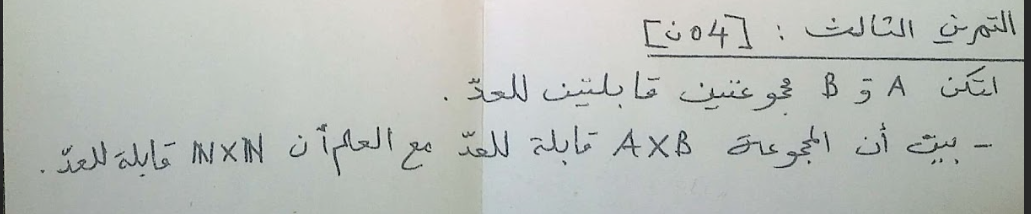 التمرين الثالث : [04ن]
لتكن A و B مجموعتين قابلتين للعدّ .
- بيّن أن المجموعة A×B قابلة للعدّ مع العلم أن ℕ×ℕ قابلة للعدّ .